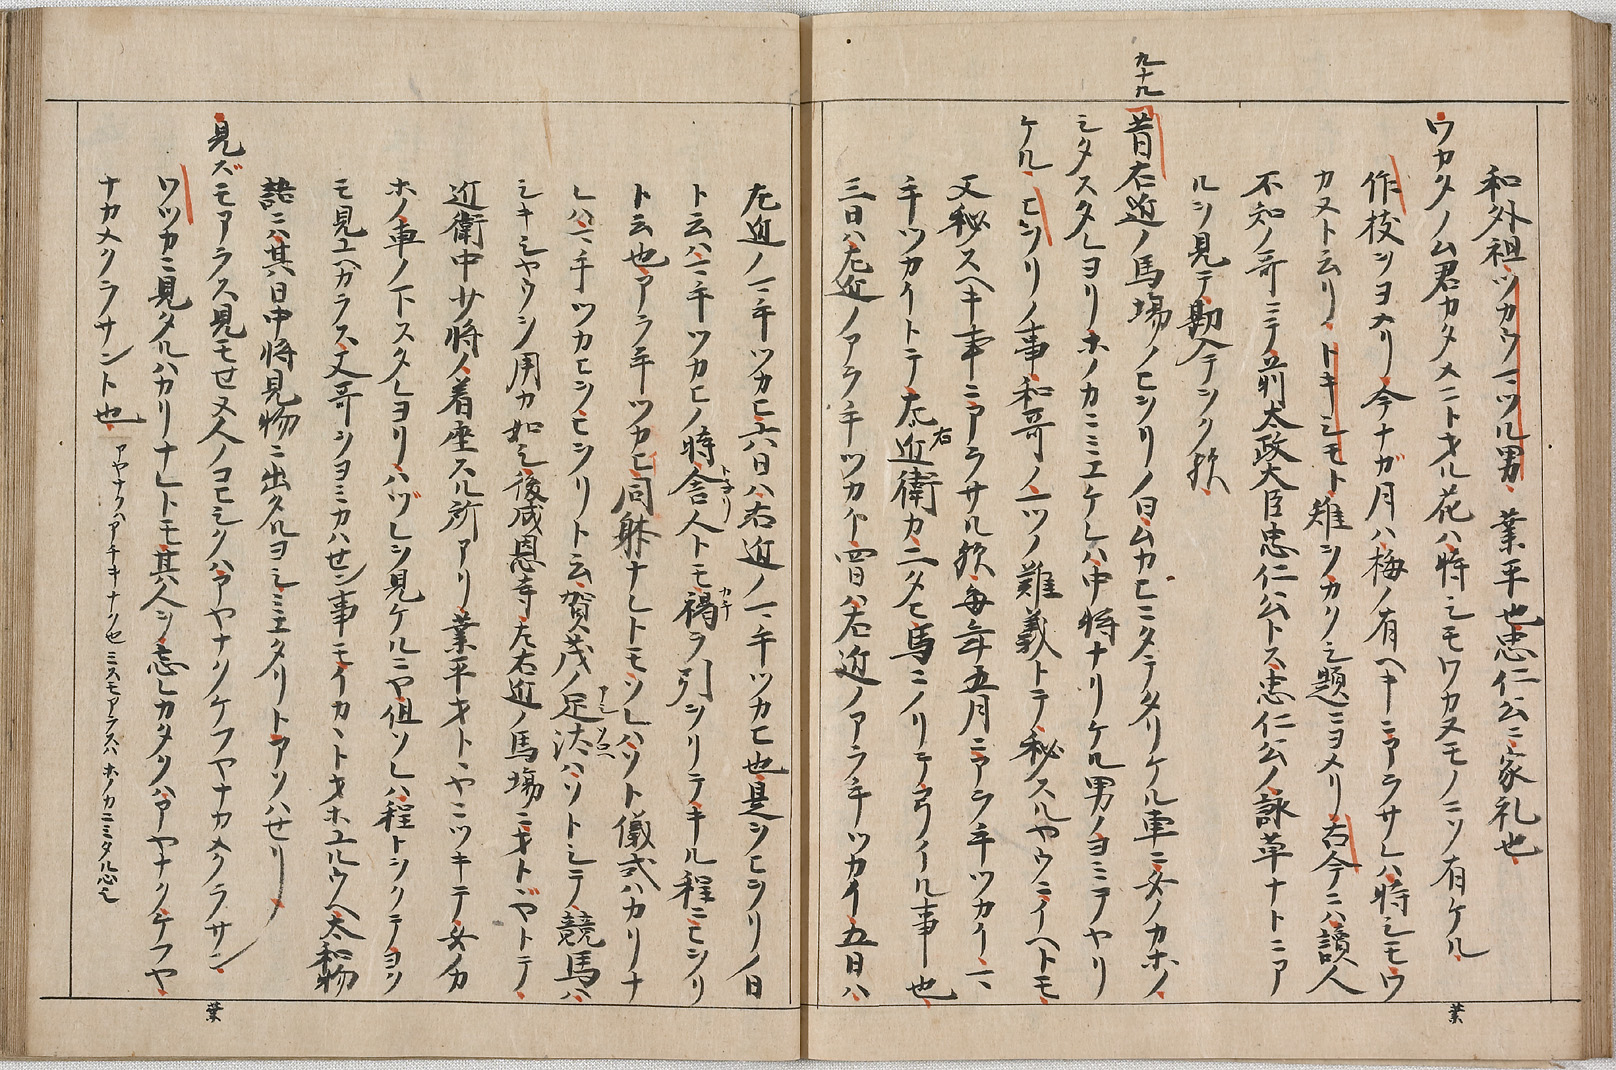 和外祖ツカウマツル男業平也忠仁公ニ家礼也
ワカタノム君カタメニトオル花ハ時シモワカヌモノニソ有ケル
作枝ヲヨメリ今ナガ月ハ梅ノ有ヘキニアラサレハ時シモワ
カヌト云リトキシモト雉ヲカクシ題ニヨメリ古今ニハ讀人
不知ノ哥ニテ前太政大臣忠仁公トス忠仁公ノ詠草ナトニア
ルヲ見テ勘入テヲク歟
九十九
昔右近ノ馬場ノヒヲリノ日ムカヒニタテタリケル車ニ女ノカホノ
シタスタレヨリホノカニミエケレハ中将ナリケル男ノヨミテヤリ
ケルヒヲリノ事和哥ノ一ツノ難義トテ秘スルヤウニイヘトモ
又秘スヘキ事ニアラサル歟毎年五月ニアラ手ツカイマ
手ツカイトテ左近衛カ二タヒ馬ニノリテ弓イル事也
右
三日ハ左近ノアラ手ツカイ四日ハ右近ノアラ手ツカイ五日ハ
葉
左近ノマ手ツカヒ六日ハ右近ノマ手ツカヒ也是ヲヒヲリノ日
ト云ハマ手ツカヒノ時舎人トモ褐ヲ引ヲリテキル程ニヒヲリ
トネリ
カチ
ト云也アラ手ツカヒ同躰ナレトモソレハソト儀式ハカリナ
レハマ手ツカヒヲヒヲリト云賀茂ノ足汰ハソトシテ競馬ハ
アシソロヘ
シキシヤウヲ用カ如シ後成恩寺左右近ノ馬場ニオトヾヤトテ
近衛中少将ノ着座スル所アリ業平オトヤニツキテ女カ
ホノ車ノ下スタレヨリハヅレヲ見ケルニヤ但ソレハ程トヲクテヨク
モ見エヘカラス又哥ヲヨミカハせン事モイカヽトオホエルウヘ太和物
語ニハ其日中将見物ニ出タルヨシミエタリトアソハせリ
見ズモアラス見モせヌ人ノコヒシクハアヤナクケフヤナカメクラサン
ワツカニ見タルハカリナレトモ其人ヲ恋レカタクハアヤナクケフヤ
ナカメクラサント也
アヤナクハアチキナク也 ミスモアラスハホノカニミタル心也
葉